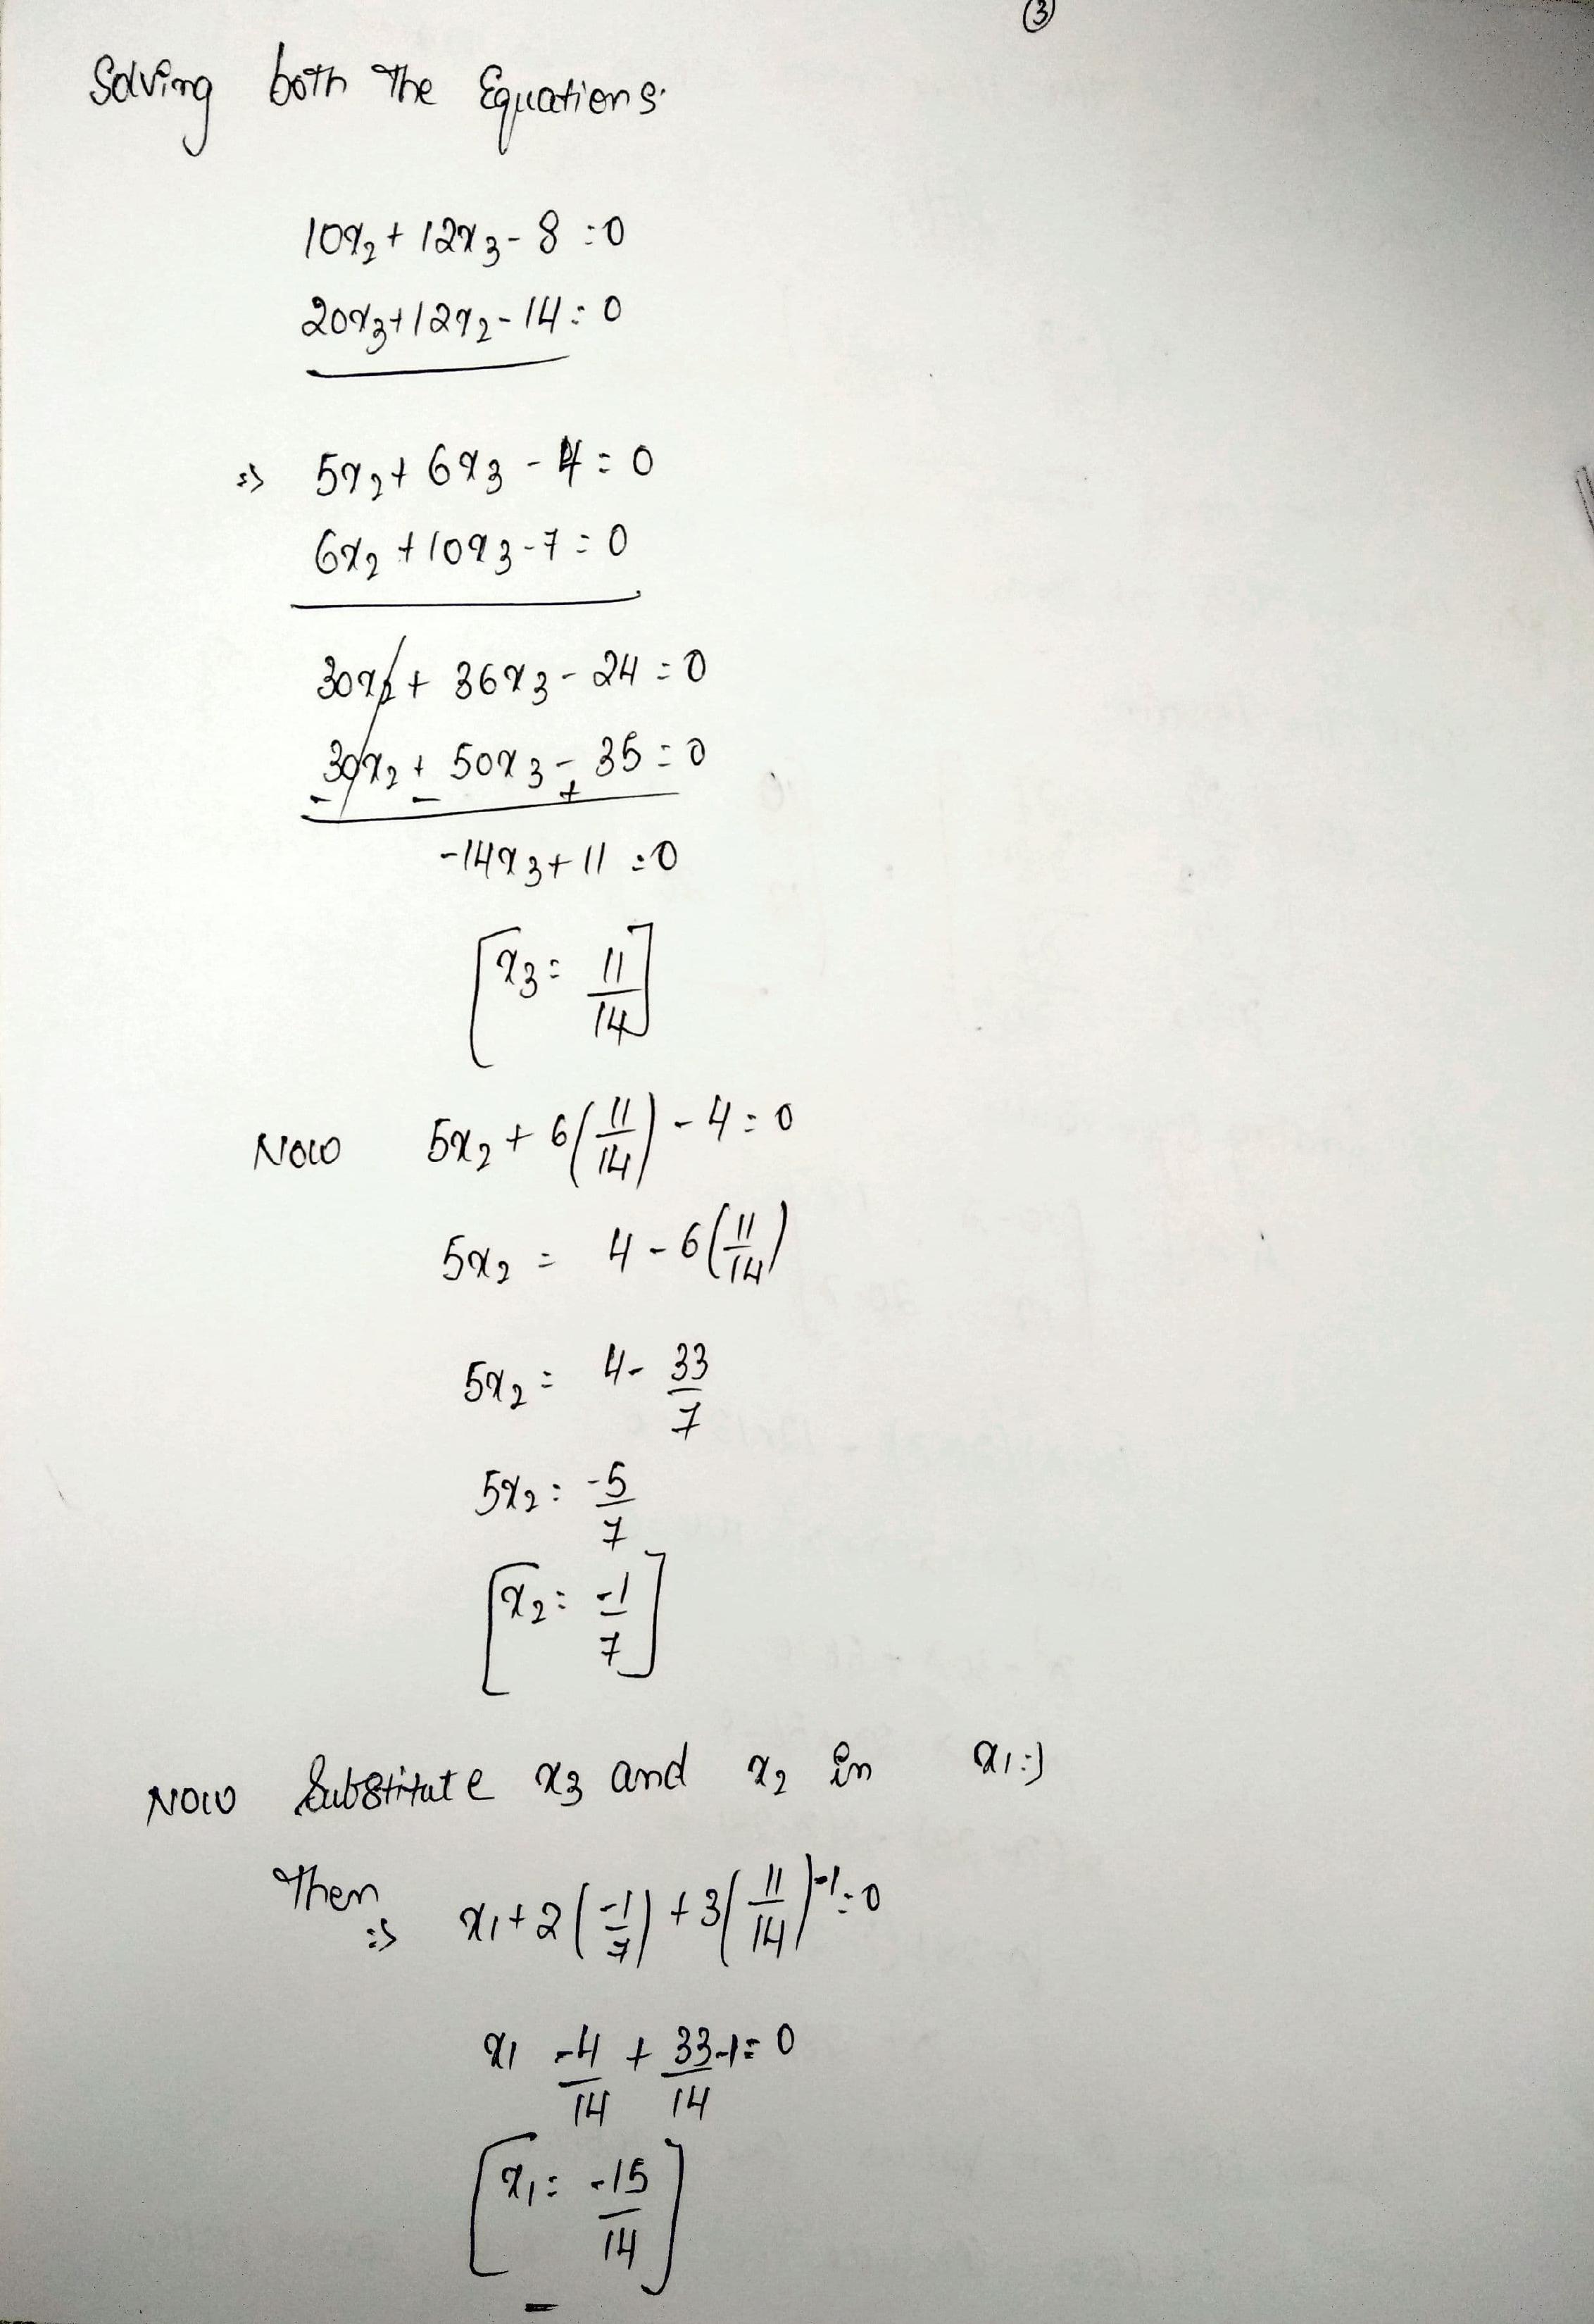 ③
Solving both the Equations.
10x₂ + 12x₃ - 8 = 0
20x₃ + 12x₂ - 14 = 0
=> 5x₂ + 6x₃ - 4 = 0
6x₂ + 10x₃ - 7 = 0
30x₂ + 36x₃ - 24 = 0
30x₂ + 50x₃ - 35 = 0
- - +
-14x₃ + 11 = 0
[x₃ = 11/14]
Now 5x₂ + 6(11/14) - 4 = 0
5x₂ = 4 - 6(11/14)
5x₂ = 4 - 33/7
5x₂ = -5/7
[x₂ = -1/7]
Now Substitute x₃ and x₂ in x₁:)
Then => x₁ + 2(-1/7) + 3(11/14) - 1 = 0
x₁ -4/14 + 33/14 - 1 = 0
[x₁ = -15/14]